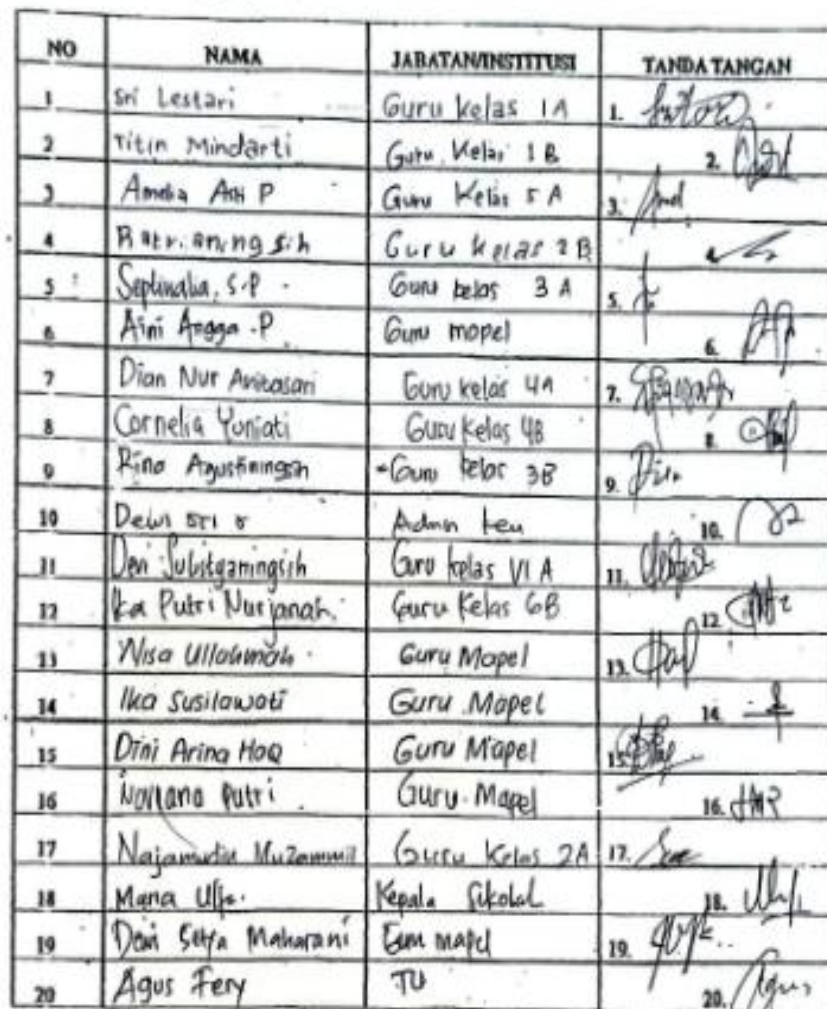 NO NAMA JABATAN/INSTITUSI TANDA TANGAN
1 Sri Lestari Guru Kelas 1A 1.
2 Titin Mindarti Guru Kelas 1B 2.
3 Amelia P Guru Kelas 5A 3.
4 Guru Kelas 2B 4.
5 S.P Guru kelas 3A 5.
6 Aini Angga .P Guru mapel 6.
7 Dian Nur Guru kelas 4A 7.
8 Cornelia Yuniati Guru Kelas 4B 8.
9 Rina Agustiningsih Guru kelas 3B 9.
10 Dewi Sri Admin keu 10.
11 Guru kelas VI A 11.
12 Ika Putri Nurjanah. Guru Kelas 6B 12
13 Nisa Guru Mapel 13.
14 Ika Susilowati Guru Mapel 14.
15 Dini Arina Haq Guru Mapel 15.
16 Putri Guru Mapel 16.
17 Najamudin Muzammil Guru Kelas 2A 17.
18 Maria Kepala Sekolah 18.
19 Dewi Setya Maharani mapel 19.
20 Agus Fery TU 20. Agus